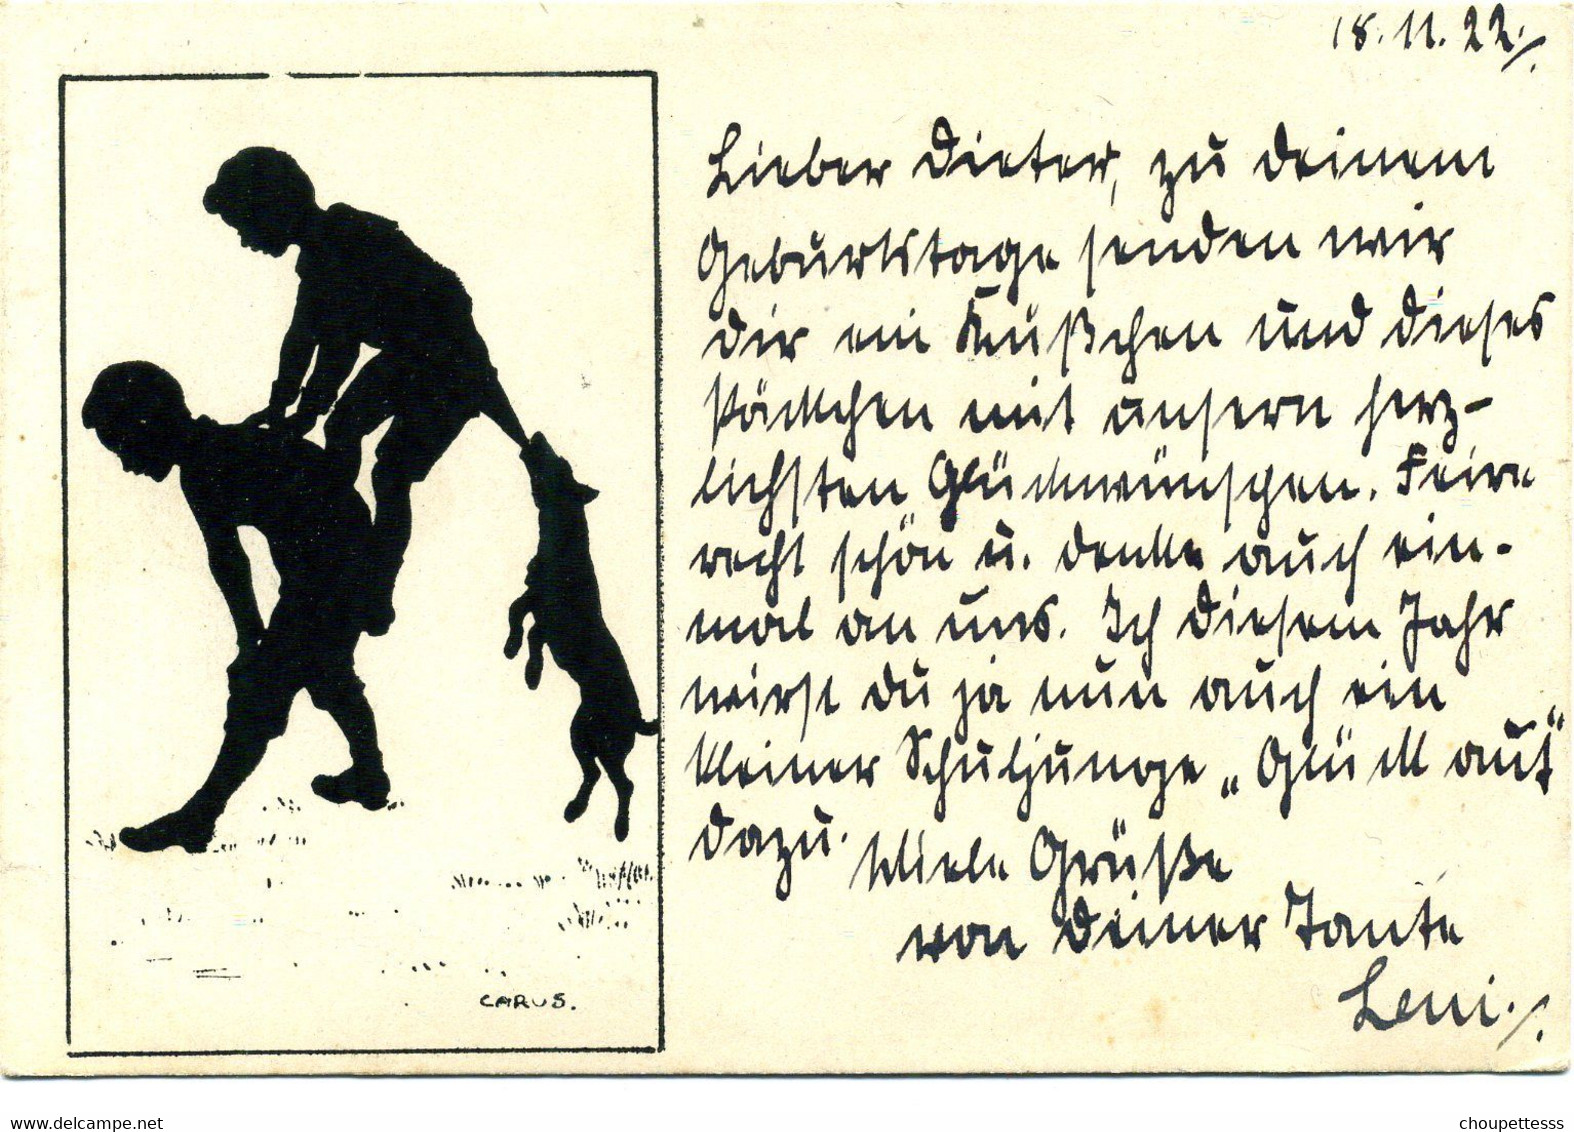 18. 11. 22.
Lieber Dieter, zu deinem
Geburtstage senden wir
dir ein Küßchen und dieses
Päckchen mit unsern herz-
lichsten Glückwünschen. Feire
recht schön u. denke auch ein-
mal an uns. Ich diesem Jahr
wirst du ja nun auch ein
kleiner Schuljunge „Glück auf"
dazu. Viele Grüße
von deiner Tante
Leni.
CARUS.
www.delcampe.net
choupettesss